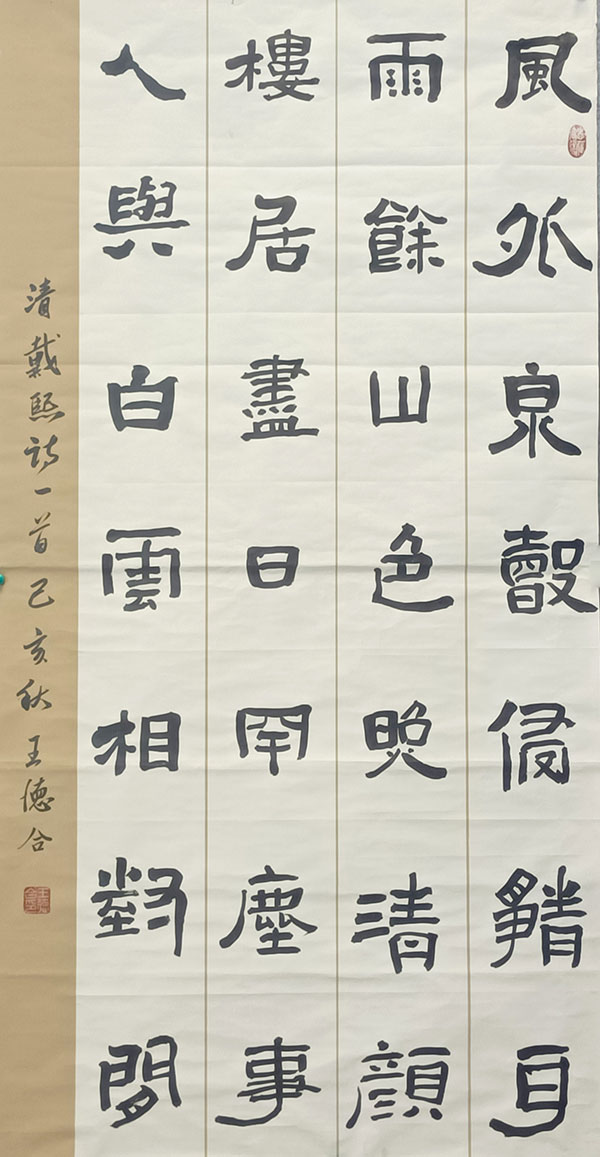 風外泉聲侵靜耳
雨餘山色晚清顏
樓居盡日罕塵事
人與白雲相對閒
清戴熙詩一首己亥秋王德合